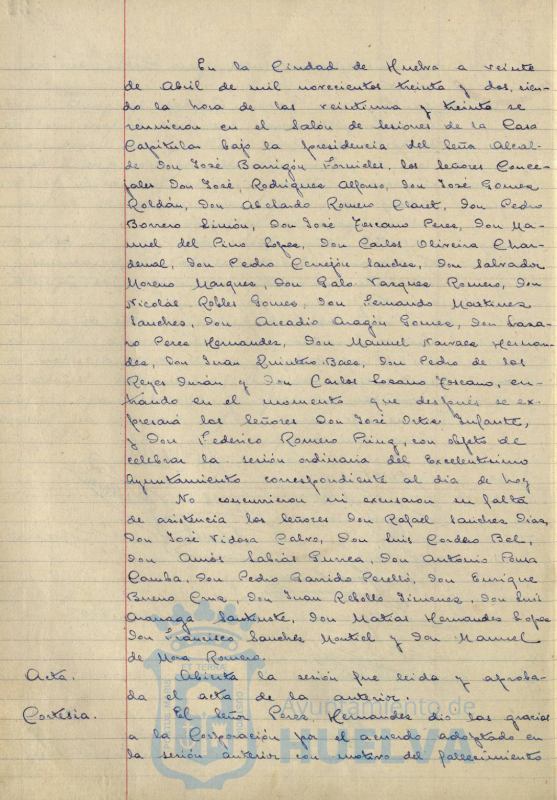 En la Ciudad de Huelva a veinte
de Abril de mil novecientos treinta y dos, sien-
do la hora de las veintiuna y treinta se
reunieron en el Salón de sesiones de la Casa
Capitular bajo la presidencia del Señor Alcal-
de Don José Barrigón Fornieles, los señores Conce-
jales Don José, Rodríguez Alfonso, Don José Gomez
Roldán, Don Abelardo Romero Claret, Don Pedro
Borrero Limón, Don José Toscano Perez, Don Ma-
nuel del Pino Lopez, Don Carlos Oliveira Char-
denal, Don Pedro Cerrejón Sanchez, Don Salvador
Moreno Marquez, Don Galo Vazquez Romero, Don
Nicolás Robles Gomez, Don Fernando Martinez
Sanchez, Don Arcadio Aragón Gomez, Don Laza-
ro Perez Hernandez, Don Manuel Narvaez Hernan-
dez, Don Juan Quintero Baez, Don Pedro de los
Reyes Durán y Don Carlos Lozano Toscano, en-
trando en el momento que después se ex-
presará los señores Don José Infante,
y Don Federico Romero con objeto de
celebrar la sesión ordinaria del Excelentísimo
Ayuntamiento correspondiente al día de hoy
No concurrieron ni excusaron su falta
de asistencia los señores Don Rafael Sanchez Diaz,
Don José Vidosa Calvo, Don Luis Cordero Bel,
Don Amós Sabrás Gurrea, Don Antonio Pousa
Camba, Don Pedro Garrido Perelló, Don Enrique
Bueno Cruz, Don Juan Rebollo Jimenez, Don Luis
Don Matías Hernandez Lopez
Don Francisco Sanchez Montiel y Don Manuel
de Mora Romero.
Acta. Abierta la sesión fue leida y aproba-
da el acta de la anterior.
Cortesía. El Señor Perez Hernandez dio las gracias
a la Corporación por el acuerdo adoptado en
la sesión anterior con motivo del fallecimiento
Ayuntamiento de
HUELVA